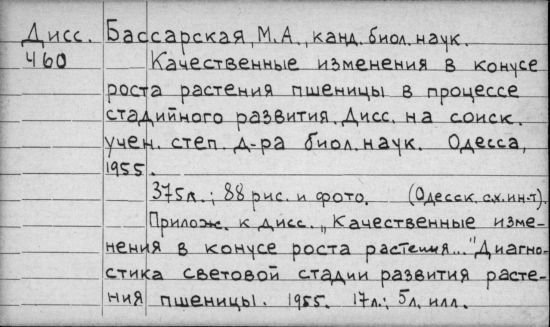 Дисс. Бассарская, М.А., канд. биол. наук.
460 Качественные изменения в конусе
роста растения пшеницы в процессе
стадийного развития. Дисс. на соиск.
учен. степ. д-ра биол. наук. Одесса,
1955.
375л.; 88 рис. и фото. (Одесск. с.х. ин-т).
Прилож. к дисс. „Качественные изме-
нения в конусе роста растения..." Диагно-
стика световой стадии развития расте-
ния пшеницы. 1955. 17л.; 5л. илл.